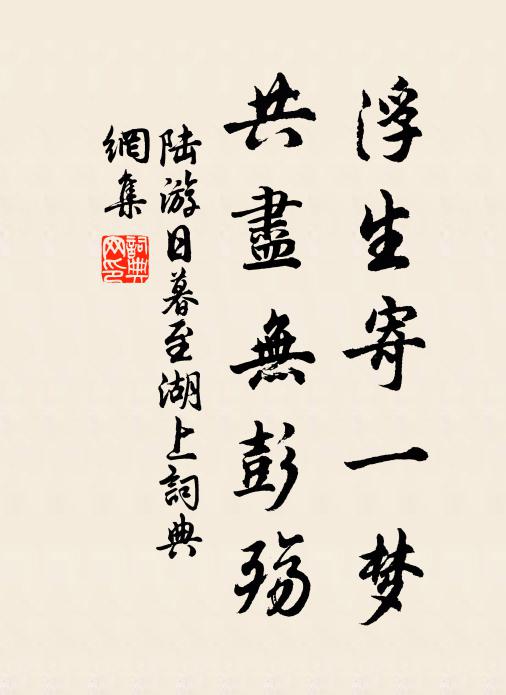 浮生寄一梦
共盡無彭殤
陆游日暮至湖上詞典
網集
詞典
网印